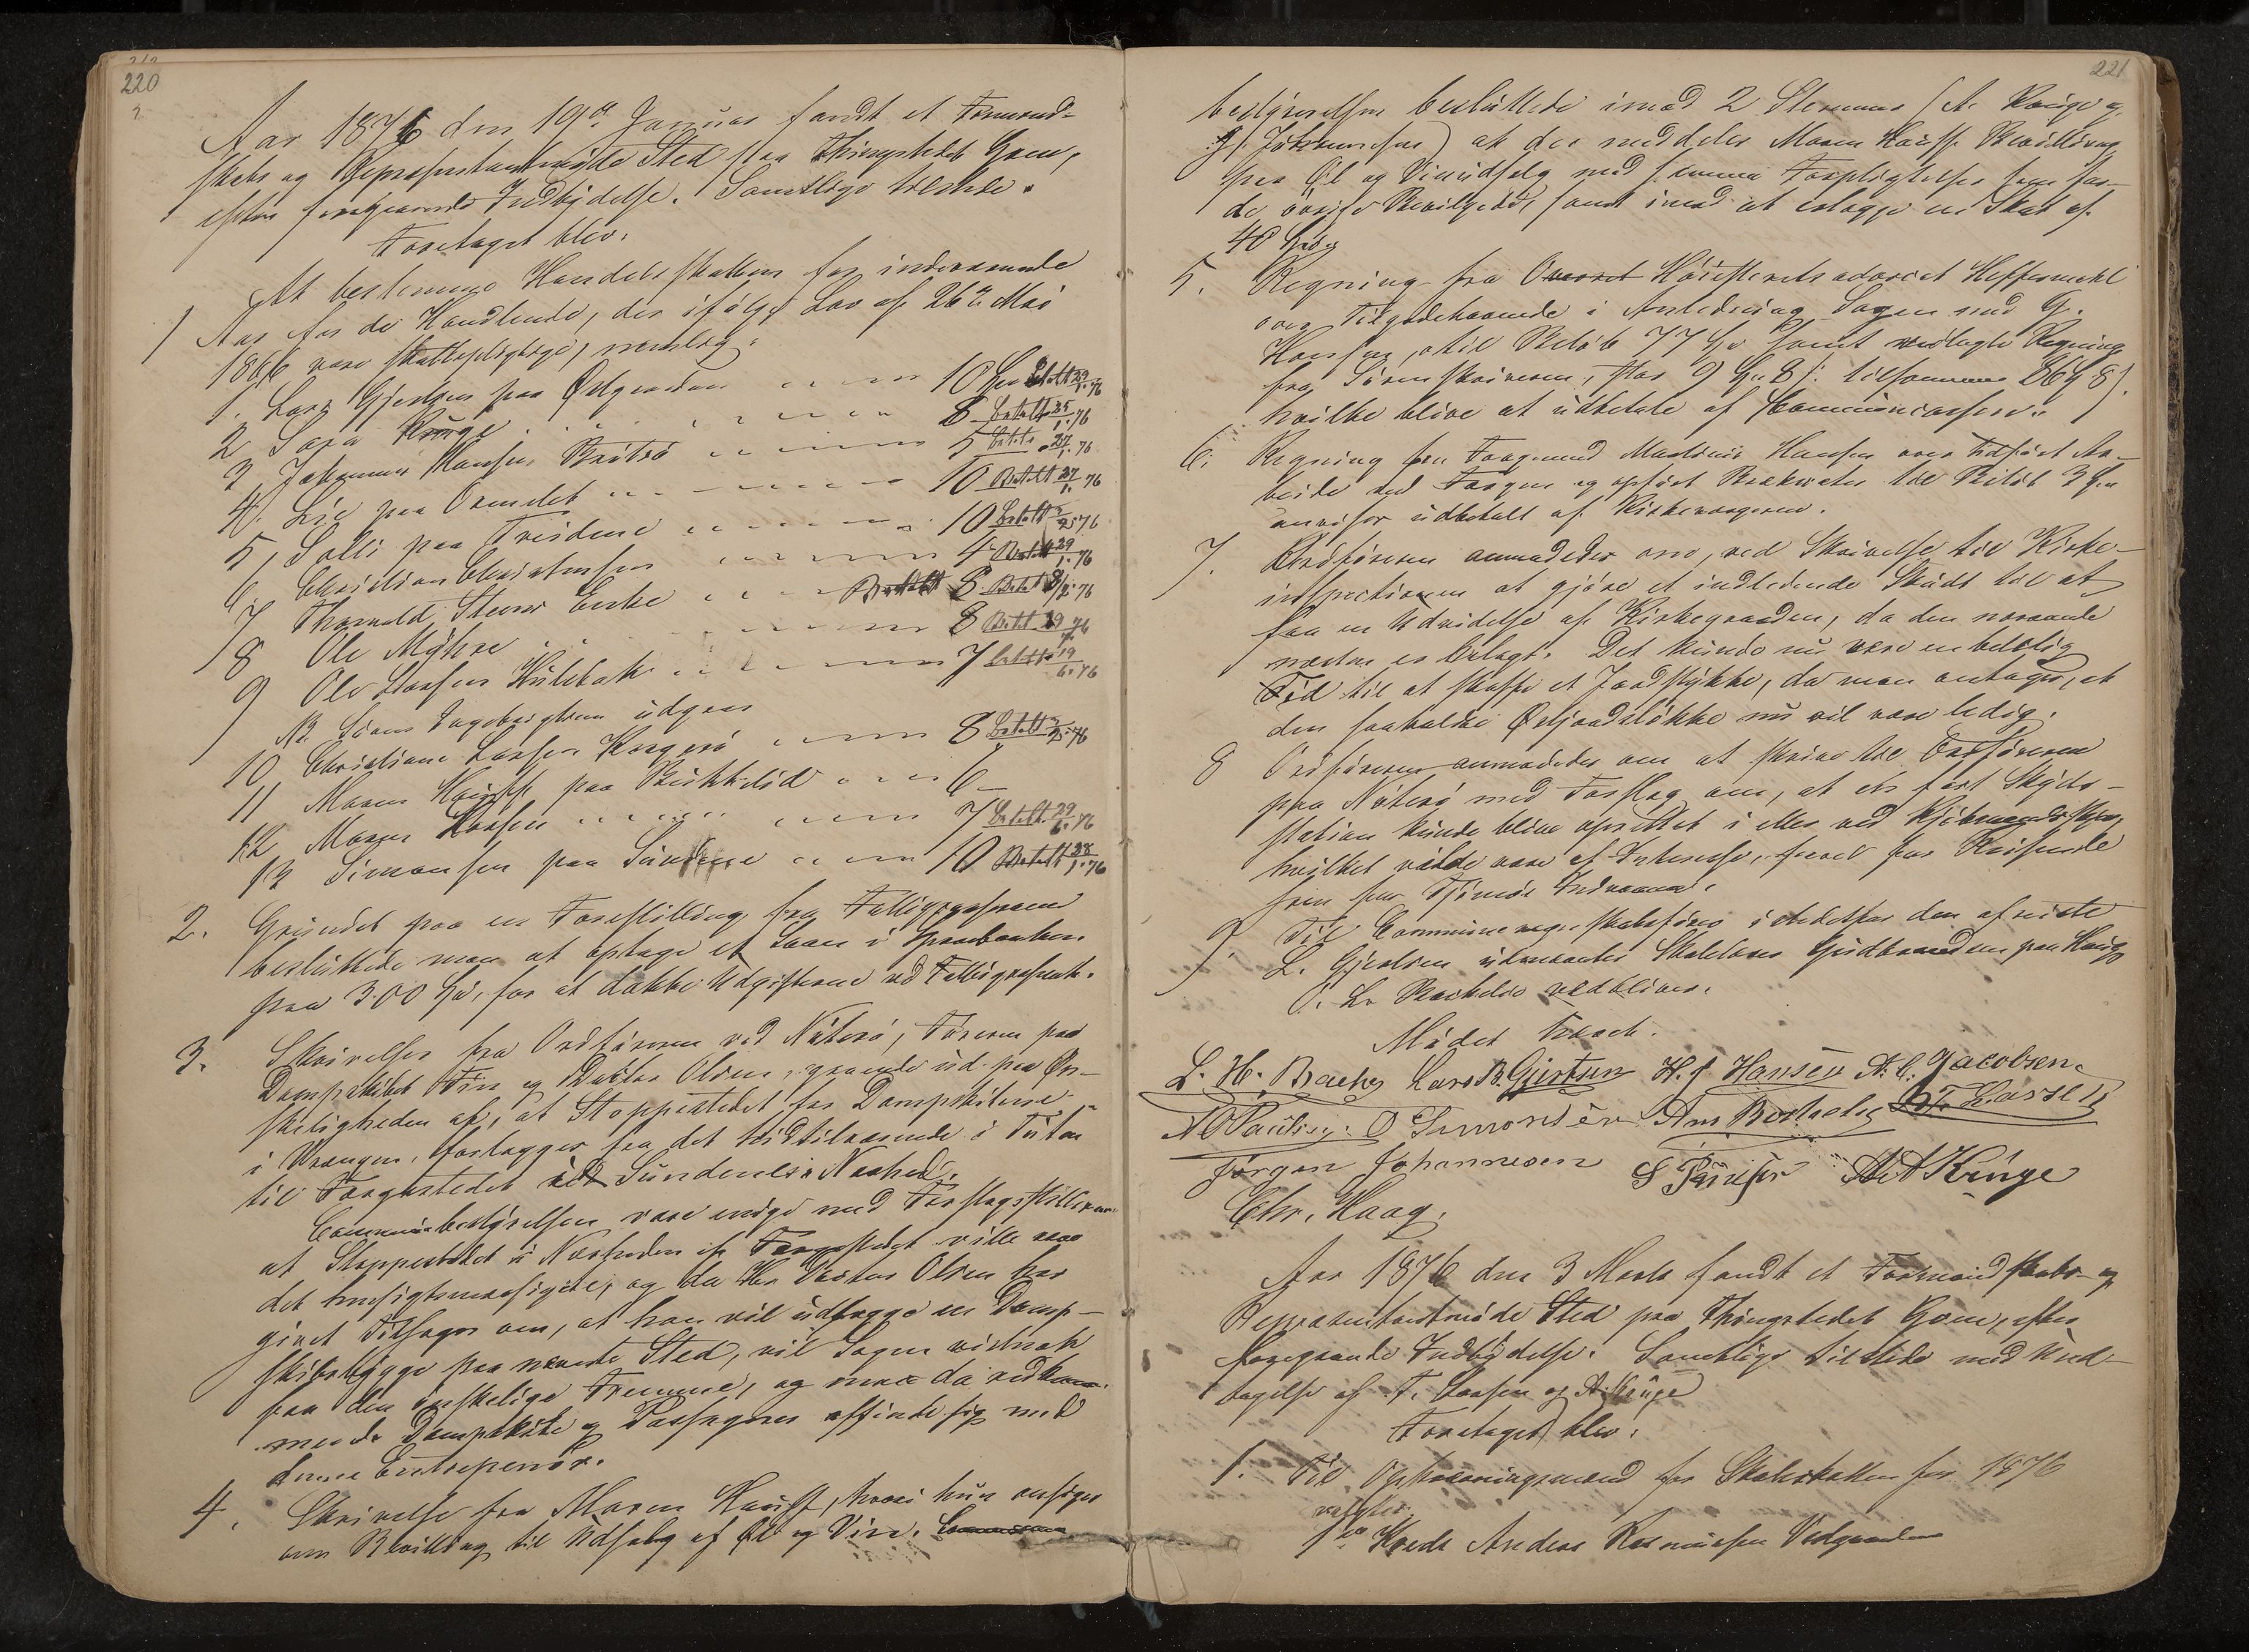 220
Aar 1876 den 19de Januar fandt et Formand-
skabs og Repræsentantmøde Sted paa Thingstedet Gom,
efter foregaaende Indbydelse. Samtlige tilstede.
Foretaget blev:
1 At bestemme Handelsskatten for indeværende
Aar for de Handlende, der ifølge Lov af 26de Mai
1866 vare skattepligtige, nemlig:
1. Lars Gjertsen paa Østgaarden 10 Betalt 29/1.76
2 Kruge 8 betalt 25/1.76
3 Johannes Hansen Bustø 5 betalt 27/1.76
4. Lie paa Ormelet 10 Betalt 27/1.76
5, Solli paa 10 betalt /2.76
6. Christian Christensen 4 Betalt 29/1.76
7 Thorvald Steens Enke 8 Betalt 8/2.76
8 Ole Myhre 8 Betalt 29 76
9 Ole Larsen Hulebak 7 betalt 19/6.76
NB. Søren Engebrigtsen udgaar
10 Christian Larsen 8 betalt 76
11 Maren Hauff paa 6
12 Maren Larsen 7 betalt 29/6.76
13 Simonsen paa Sundene 10 Betalt 28/1.76
2. Grundet paa en Forestilling fra Fattigkassereren
besluttede man at optage et Laan i Sparebanken
paa 300 for at dække Udgifterne ved Fattigvæsenet.
3. Skrivelser fra Ordføreren ved Nøterø, Føreren paa
Dampskibet og Doktor Olsen, gaaende ud paa Øn-
skeligheden af, at Stoppestedet for Dampskibene
i Vrængen, forlægges fra det hidtilværende i
til Færgestedet ved Sundenes Nærhed.
Communebestyrelsen vare enige med Forslagsstillerne
at Stoppestedet i Nærheden af Færgestedet ville være
det hensigtsmæssigste, og da Hr Doktor Olsen har
givet Tilsagn om, at han vil udlægge en Damp-
skibsbrygge paa nævnte Sted, vil Sagen vistnok
faa den ønskelige Fremme, og maa da vedkom-
mende Dampskibe og Passagerer affinde sig med
denne Entrepenør.
4. Skrivelse fra Maren Hauff, hvori hun ansøger
om Bevilling til Udsalg af Øl og Vin.
221
bestyrelsen besluttede imod 2 Stemmer (A. Kruge og
J. Johannesen) at der meddeles Maren Hauff Bevilling
paa Øl og Viinudsalg med samme Forpligtelser som for
de øvrige Bevilgede, samt imod at erlægge en Skat af
40
5. Regning fra Høiesteretsadvocat Heffermehl
over Tilgodehavende i Anledning Sagen med G.
Hansen, stil Beløb 77 samt vedlagte Regning
fra Sørenskriveren, stor 9 8 tilsammen 86 8
hvilke blive at udbetale af Communecassen.
6. Regning fra Færgemand Martinus Hansen over udført Ar-
beide ved Færgen og opført til Beløb 3
anvises udbetalt af Kirkeværgeren.
7. Ordføreren anmodedes om, ved Skrivelse til Kirke-
inspectionen at gjøre et indledende Skridt til at
faa en Udvidelse af Kirkegaarden, da den nærværende
næsten er belagt. Det kunde nu være en beleilig
Tid til at skaffe et Jordstykke, da man antager, at
den saakaldte nu vil være ledig.
8 Ordføreren anmodedes om at skrive til Ordføreren
paa Nøterø med Forslag om, at en fast Skyds-
station kunde blive oprettet i eller ved
hvilket vilde være af Interesse, saavel for Reisende
som for Tjømøs Indvaanere.
9. Til Communeregnskabsfører istedetfor den afviste
L. Gjertsen udnævntes Skolelærer Gudbrandsen paa Haug
L. Bache vedbliver.
Mødet hævet.
L. H. Bache Lars B. Gjertsen H. J. Hansen A. C. Jacobsen
N O Paulsen. O Simonsen T. Larsen
Jørgen Johannesen A. A Kruge
Chr. Haag.
Aar 1876 den 3 Marts fandt et Formandskabs- og
Repræsentantmøde Sted paa Thingstedet Gom, efter
foregaaende Indbydelse. Samtlige tilstede med Und-
tagelse af T. Larsen og A. Kruge
Foretaget blev:
1. Til Opkrævningsmænd for Skoleskatten for 1876
valgtes:
1ste Kreds Anders Rasmussen